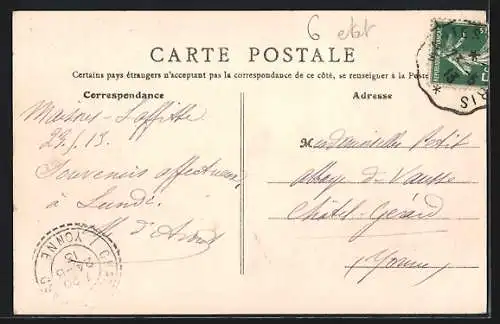 6 etat
CARTE POSTALE
Certains pays étrangers n'acceptant pas la correspondance de ce côté, se renseigner à la Poste
Correspondance
Adresse
Maisons-Laffitte
Souvenirs affectueux
à Lundi.
Mademoiselle Petit
abbaye de Vausse
Châtel-Gérard
(Yonne)
YONNE